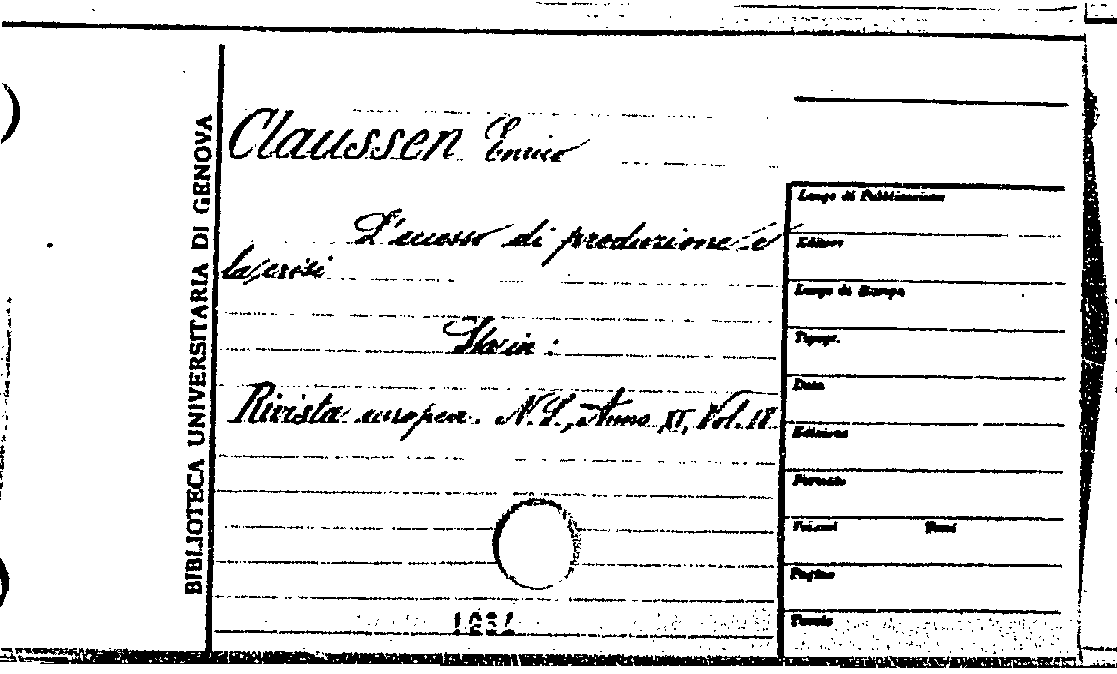 BIBLIOTECA UNIVERSITARIA DI GENOVA
Claussen Enrico
L'eccesso di produzione e
la crisi
Sta in:
Rivista europea. N.S., Anno XI, Vol. 18
Luogo di Pubblicazione
Editore
Luogo di Stampa
Tipogr.
Data
Edizione
Formato
Volumi Tomi
Pagine
Tavole